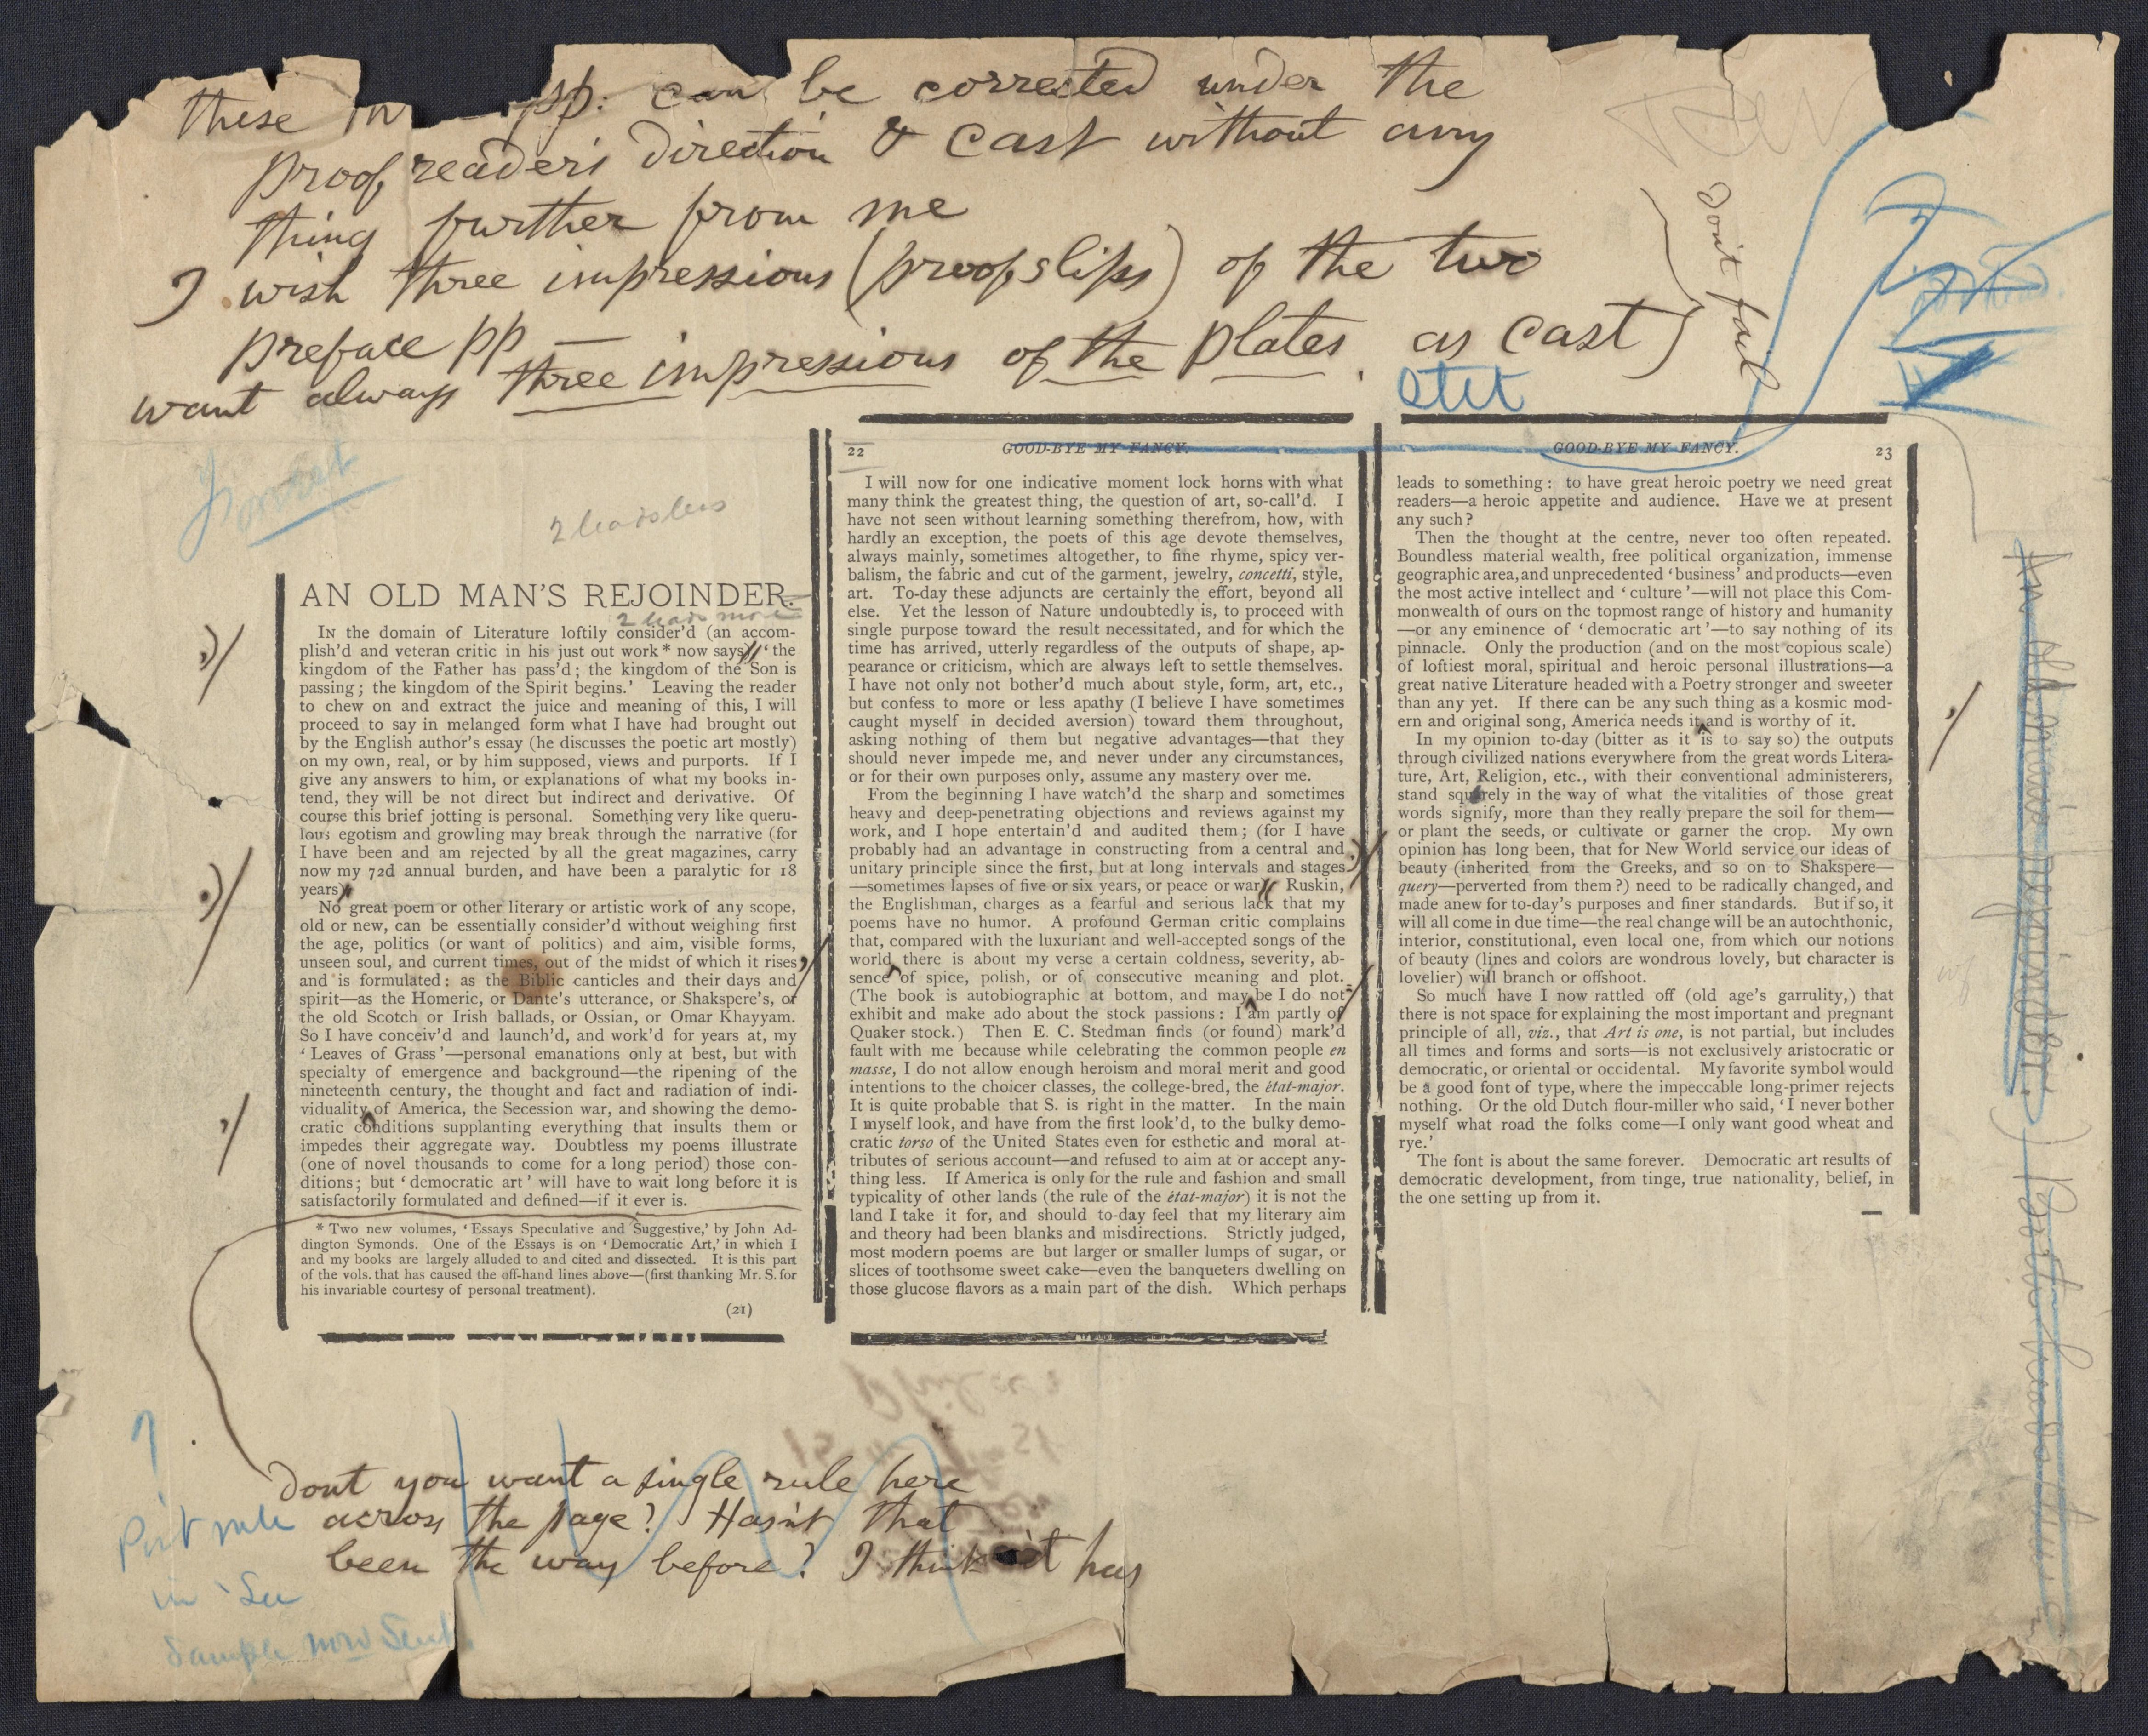 these pp: can be corrected under the
proof reader's direction & cast without any
thing further from me
I wish three impressions (proof slips) of the two
preface pp —
want always three impressions of the plates as cast
don't fail
stet
2 leads less
AN OLD MAN'S REJOINDER.
2 leads more
IN the domain of Literature loftily consider'd (an accom-
plish'd and veteran critic in his just out work* now says) 'the
kingdom of the Father has pass'd; the kingdom of the Son is
passing; the kingdom of the Spirit begins.' Leaving the reader
to chew on and extract the juice and meaning of this, I will
proceed to say in melanged form what I have had brought out
by the English author's essay (he discusses the poetic art mostly)
on my own, real, or by him supposed, views and purports. If I
give any answers to him, or explanations of what my books in-
tend, they will be not direct but indirect and derivative. Of
course this brief jotting is personal. Something very like queru-
lous egotism and growling may break through the narrative (for
I have been and am rejected by all the great magazines, carry
now my 72d annual burden, and have been a paralytic for 18
years)
No great poem or other literary or artistic work of any scope,
old or new, can be essentially consider'd without weighing first
the age, politics (or want of politics) and aim, visible forms,
unseen soul, and current times, out of the midst of which it rises
and is formulated: as the Biblic canticles and their days and
spirit—as the Homeric, or Dante's utterance, or Shakspere's, or
the old Scotch or Irish ballads, or Ossian, or Omar Khayyam.
So I have conceiv'd and launch'd, and work'd for years at, my
'Leaves of Grass'—personal emanations only at best, but with
specialty of emergence and background—the ripening of the
nineteenth century, the thought and fact and radiation of indi-
viduality of America, the Secession war, and showing the demo-
cratic conditions supplanting everything that insults them or
impedes their aggregate way. Doubtless my poems illustrate
(one of novel thousands to come for a long period) those con-
ditions; but 'democratic art' will have to wait long before it is
satisfactorily formulated and defined—if it ever is.
* Two new volumes, 'Essays Speculative and Suggestive,' by John Ad-
dington Symonds. One of the Essays is on 'Democratic Art,' in which I
and my books are largely alluded to and cited and dissected. It is this part
of the vols. that has caused the off-hand lines above—(first thanking Mr. S. for
his invariable courtesy of personal treatment).
(21)
22 GOOD-BYE MY FANCY.
I will now for one indicative moment lock horns with what
many think the greatest thing, the question of art, so-call'd. I
have not seen without learning something therefrom, how, with
hardly an exception, the poets of this age devote themselves,
always mainly, sometimes altogether, to fine rhyme, spicy ver-
balism, the fabric and cut of the garment, jewelry, concetti, style,
art. To-day these adjuncts are certainly the effort, beyond all
else. Yet the lesson of Nature undoubtedly is, to proceed with
single purpose toward the result necessitated, and for which the
time has arrived, utterly regardless of the outputs of shape, ap-
pearance or criticism, which are always left to settle themselves.
I have not only not bother'd much about style, form, art, etc.,
but confess to more or less apathy (I believe I have sometimes
caught myself in decided aversion) toward them throughout,
asking nothing of them but negative advantages—that they
should never impede me, and never under any circumstances,
or for their own purposes only, assume any mastery over me.
From the beginning I have watch'd the sharp and sometimes
heavy and deep-penetrating objections and reviews against my
work, and I hope entertain'd and audited them; (for I have
probably had an advantage in constructing from a central and
unitary principle since the first, but at long intervals and stages
—sometimes lapses of five or six years, or peace or war) Ruskin,
the Englishman, charges as a fearful and serious lack that my
poems have no humor. A profound German critic complains
that, compared with the luxuriant and well-accepted songs of the
world there is about my verse a certain coldness, severity, ab-
sence of spice, polish, or of consecutive meaning and plot.
(The book is autobiographic at bottom, and may be I do not
exhibit and make ado about the stock passions: I am partly of
Quaker stock.) Then E. C. Stedman finds (or found) mark'd
fault with me because while celebrating the common people en
masse, I do not allow enough heroism and moral merit and good
intentions to the choicer classes, the college-bred, the état-major.
It is quite probable that S. is right in the matter. In the main
I myself look, and have from the first look'd, to the bulky demo-
cratic torso of the United States even for esthetic and moral at-
tributes of serious account—and refused to aim at or accept any-
thing less. If America is only for the rule and fashion and small
typicality of other lands (the rule of the état-major) it is not the
land I take it for, and should to-day feel that my literary aim
and theory had been blanks and misdirections. Strictly judged,
most modern poems are but larger or smaller lumps of sugar, or
slices of toothsome sweet cake—even the banqueters dwelling on
those glucose flavors as a main part of the dish. Which perhaps
GOOD-BYE MY FANCY. 23
leads to something: to have great heroic poetry we need great
readers—a heroic appetite and audience. Have we at present
any such?
Then the thought at the centre, never too often repeated.
Boundless material wealth, free political organization, immense
geographic area, and unprecedented 'business' and products—even
the most active intellect and 'culture'—will not place this Com-
monwealth of ours on the topmost range of history and humanity
—or any eminence of 'democratic art'—to say nothing of its
pinnacle. Only the production (and on the most copious scale)
of loftiest moral, spiritual and heroic personal illustrations—a
great native Literature headed with a Poetry stronger and sweeter
than any yet. If there can be any such thing as a kosmic mod-
ern and original song, America needs it and is worthy of it.
In my opinion to-day (bitter as it is to say so) the outputs
through civilized nations everywhere from the great words Litera-
ture, Art, Religion, etc., with their conventional administerers,
stand squarely in the way of what the vitalities of those great
words signify, more than they really prepare the soil for them—
or plant the seeds, or cultivate or garner the crop. My own
opinion has long been, that for New World service our ideas of
beauty (inherited from the Greeks, and so on to Shakspere—
query—perverted from them?) need to be radically changed, and
made anew for to-day's purposes and finer standards. But if so, it
will all come in due time—the real change will be an autochthonic,
interior, constitutional, even local one, from which our notions
of beauty (lines and colors are wondrous lovely, but character is
lovelier) will branch or offshoot.
So much have I now rattled off (old age's garrulity,) that
there is not space for explaining the most important and pregnant
principle of all, viz., that Art is one, is not partial, but includes
all times and forms and sorts—is not exclusively aristocratic or
democratic, or oriental or occidental. My favorite symbol would
be a good font of type, where the impeccable long-primer rejects
nothing. Or the old Dutch flour-miller who said, 'I never bother
myself what road the folks come—I only want good wheat and
rye.'
The font is about the same forever. Democratic art results of
democratic development, from tinge, true nationality, belief, in
the one setting up from it.
An old man's rejoinder.
Dont you want a single rule here
across the page? Hasn't that
been the way before? I think it has
Put rule
in
Sample now Sent